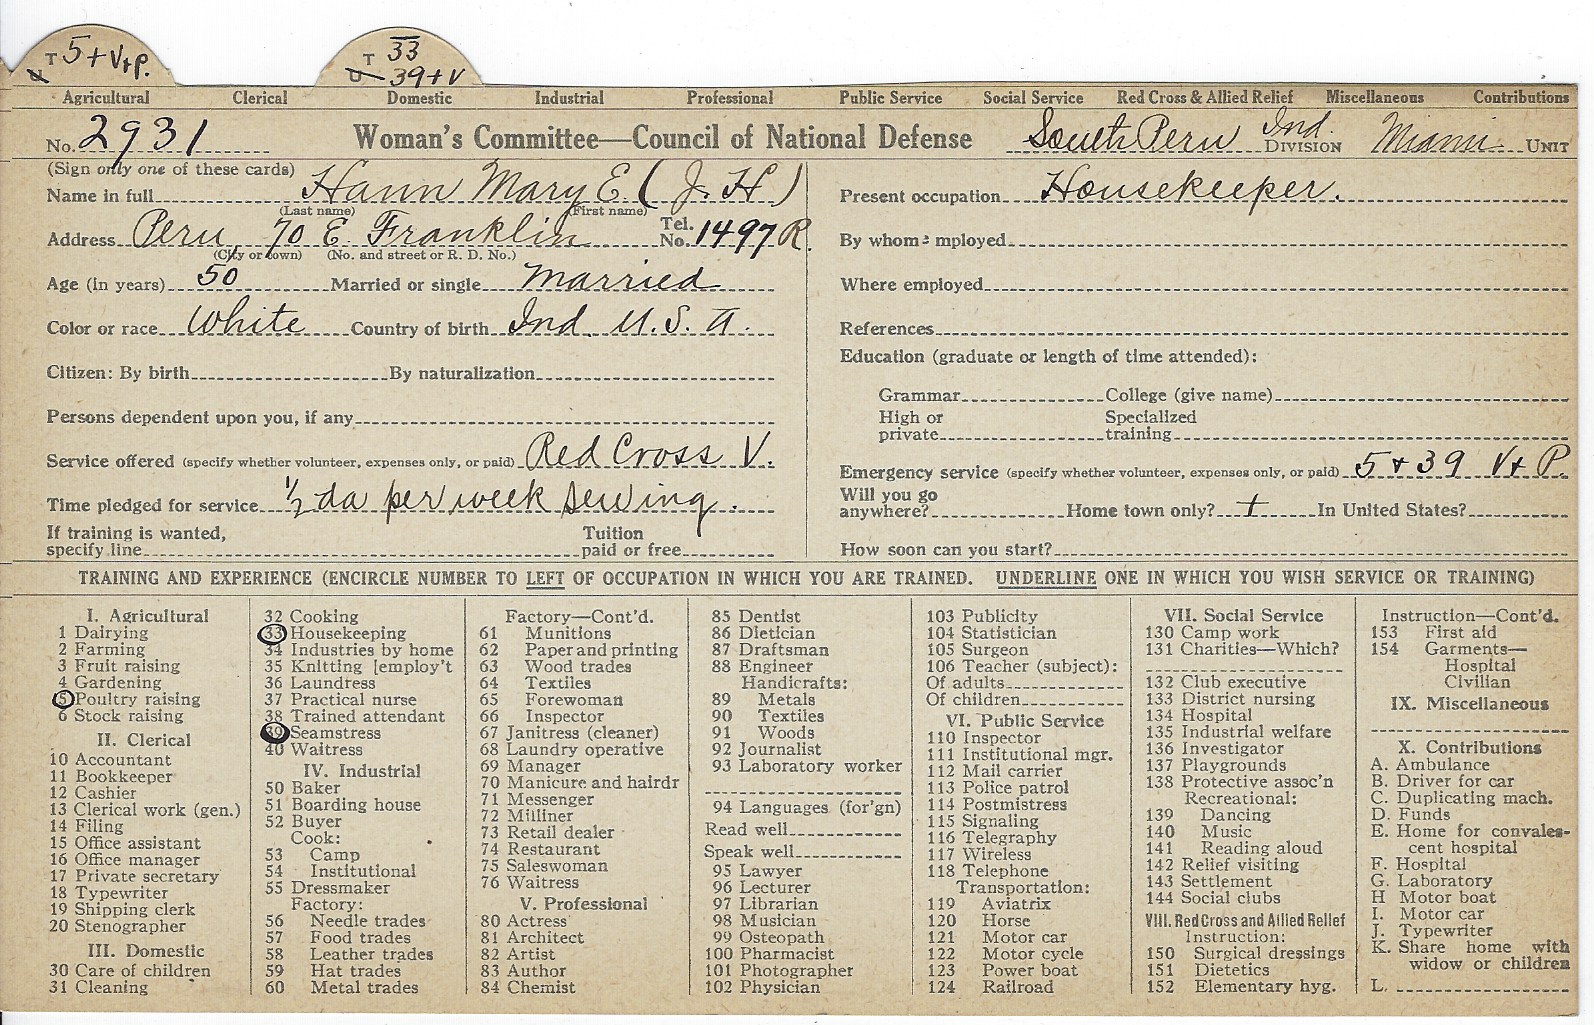 T 5 + V + P.
U
T 33
U 39 + V
Agricultural Clerical Domestic Industrial Professional Public Service Social Service Red Cross & Allied Relief Miscellaneous Contributions
No. 2931 Woman's Committee—Council of National Defense South Peru Ind. DIVISION Miami UNIT
(Sign only one of these cards)
Name in full Hann Mary E. (J. H)
(Last name) (First name)
Address Peru, 70 E Franklin Tel. No. 1497 R.
(City or town) (No. and street or R. D. No.)
Age (in years) 50 Married or single Married
Color or race White Country of birth Ind. U. S. A.
Citizen: By birth By naturalization
Persons dependent upon you, if any
Service offered (specify whether volunteer, expenses only, or paid) Red Cross V.
Time pledged for service 1/2 da per week sewing.
If training is wanted, specify line Tuition paid or free
Present occupation Housekeeper.
By whom employed
Where employed
References
Education (graduate or length of time attended):
Grammar College (give name)
High or private Specialized training
Emergency service (specify whether volunteer, expenses only, or paid) 5 + 39 V + P.
Will you go anywhere? Home town only? + In United States?
How soon can you start?
TRAINING AND EXPERIENCE (ENCIRCLE NUMBER TO LEFT OF OCCUPATION IN WHICH YOU ARE TRAINED. UNDERLINE ONE IN WHICH YOU WISH SERVICE OR TRAINING)
I. Agricultural
1 Dairying
2 Farming
3 Fruit raising
4 Gardening
5 Poultry raising
6 Stock raising
II. Clerical
10 Accountant
11 Bookkeeper
12 Cashier
13 Clerical work (gen.)
14 Filing
15 Office assistant
16 Office manager
17 Private secretary
18 Typewriter
19 Shipping clerk
20 Stenographer
III. Domestic
30 Care of children
31 Cleaning
32 Cooking
33 Housekeeping
34 Industries by home
35 Knitting [employ't
36 Laundress
37 Practical nurse
38 Trained attendant
39 Seamstress
40 Waitress
IV. Industrial
50 Baker
51 Boarding house
52 Buyer
Cook:
53 Camp
54 Institutional
55 Dressmaker
Factory:
56 Needle trades
57 Food trades
58 Leather trades
59 Hat trades
60 Metal trades
Factory—Cont'd.
61 Munitions
62 Paper and printing
63 Wood trades
64 Textiles
65 Forewoman
66 Inspector
67 Janitress (cleaner)
68 Laundry operative
69 Manager
70 Manicure and hairdr
71 Messenger
72 Milliner
73 Retail dealer
74 Restaurant
75 Saleswoman
76 Waitress
V. Professional
80 Actress
81 Architect
82 Artist
83 Author
84 Chemist
85 Dentist
86 Dietician
87 Draftsman
88 Engineer
Handicrafts:
89 Metals
90 Textiles
91 Woods
92 Journalist
93 Laboratory worker
94 Languages (for'gn)
Read well
Speak well
95 Lawyer
96 Lecturer
97 Librarian
98 Musician
99 Osteopath
100 Pharmacist
101 Photographer
102 Physician
103 Publicity
104 Statistician
105 Surgeon
106 Teacher (subject):
Of adults
Of children
VI. Public Service
110 Inspector
111 Institutional mgr.
112 Mail carrier
113 Police patrol
114 Postmistress
115 Signaling
116 Telegraphy
117 Wireless
118 Telephone
Transportation:
119 Aviatrix
120 Horse
121 Motor car
122 Motor cycle
123 Power boat
124 Railroad
VII. Social Service
130 Camp work
131 Charities—Which?
132 Club executive
133 District nursing
134 Hospital
135 Industrial welfare
136 Investigator
137 Playgrounds
138 Protective assoc'n
Recreational:
139 Dancing
140 Music
141 Reading aloud
142 Relief visiting
143 Settlement
144 Social clubs
VIII. Red Cross and Allied Relief
Instruction:
150 Surgical dressings
151 Dietetics
152 Elementary hyg.
Instruction—Cont'd.
153 First aid
154 Garments—
Hospital
Civilian
IX. Miscellaneous
X. Contributions
A. Ambulance
B. Driver for car
C. Duplicating mach.
D. Funds
E. Home for convales-
cent hospital
F. Hospital
G. Laboratory
H Motor boat
I. Motor car
J. Typewriter
K. Share home with
widow or children
L.